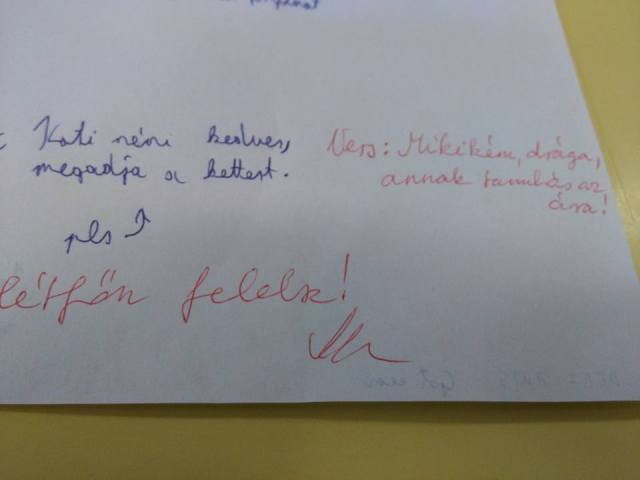 Kati néni kedves,
megadja a kettest.
pls
Vers: Mikikém, drága,
annak tanulás az
ára!
Hétfőn felelsz!